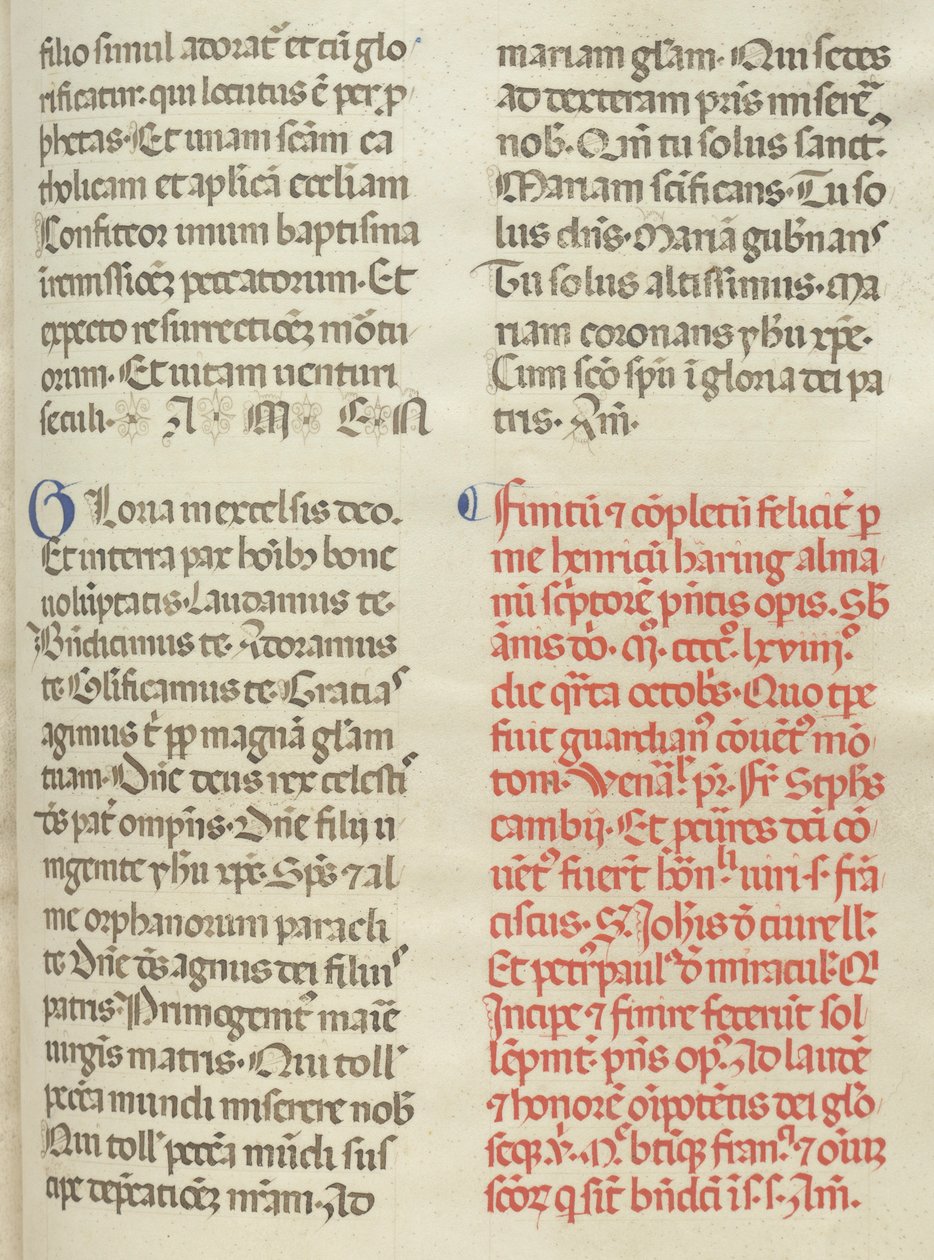 filio simul adorat᷑ et cū glo
rificatur· qui locutus ē per ꝓ
phetas· Et unam scām ca
tholicam et aplicā eccliam
Confiteor unum baptisma
ī remissioēꝫ peccatorum· Et
expecto resurrectioēꝫ mōtu
orum· Et uitam uenturi
seculi· A · M · E · N
GLoria in excelsis deo.
Et in terra pax hoībꝫ bone
uolūptatis· Laudamus te·
Bn̄dicimus te· Adoramus
te· Glīficamus te· Gracias
agimus t᷑ ꝓp magnā glām
tuam· Dn̄e deus rex celesti
ds̄ pat᷑ omp̄n̄s· Dn̄e filij u
ingenite yhū xp̄e· Sp̄s ⁊ al
me orphanorum paracli
te· Dn̄e ds̄ agnus dei filius
patris· Primogenit᷑ maīe
uirgīs matris· Qui toll᷑
pccā mundi miserere nob̄
Qui toll᷑ pccā mūdi sus
cipe dep̄catioēꝫ nr̄am· Ad
mariam glām· Qui sedes
ad dexteram pr̄is miserē
nob̄· Qm̄ tu solus sanct᷒·
Mariam scīficans· Tu so
lus dn̄s· Mariā gub̄nans
Tu solus altissimus· Ma
riam coronans yhū xp̄e·
Cum scō spū ī gloria dei pa
tris· Am̄·
Finitū ⁊ cōpletū felicit᷑ p̱
me henricū haring alma
nū sc̄ptorē pn̄tis opis. Sb̄
ānis dō· Mº· ccccº· lxviiijº
die qr̄ta octob̄s· Quo tp̄e
fuit guardian᷒ cōuēt᷒ mō
tom· Venāl᷑· pr̄· Fr̄ Stephs̄
cambij· Et pcūr̄es dc̄i cō
uēt᷒ fuer̄t hōn·li uiri· s· frā
ciscus· S· Joh̄is d̄ ciurell᷑·
Et petr᷒ paul᷒ d̄ miracul᷑· Qi
Incipe ⁊ finire fecerūt sol
lēpnit᷑· pn̄s op᷒· Ad laudē
⁊ honorē oīpotētis dei glō
seqꝫ· V· Mᵉ btīqꝫ franᶜⁱ ⁊ oīuꝫ
scōꝝ q sīt bn̄dc̄i ī s· s· Am̄·